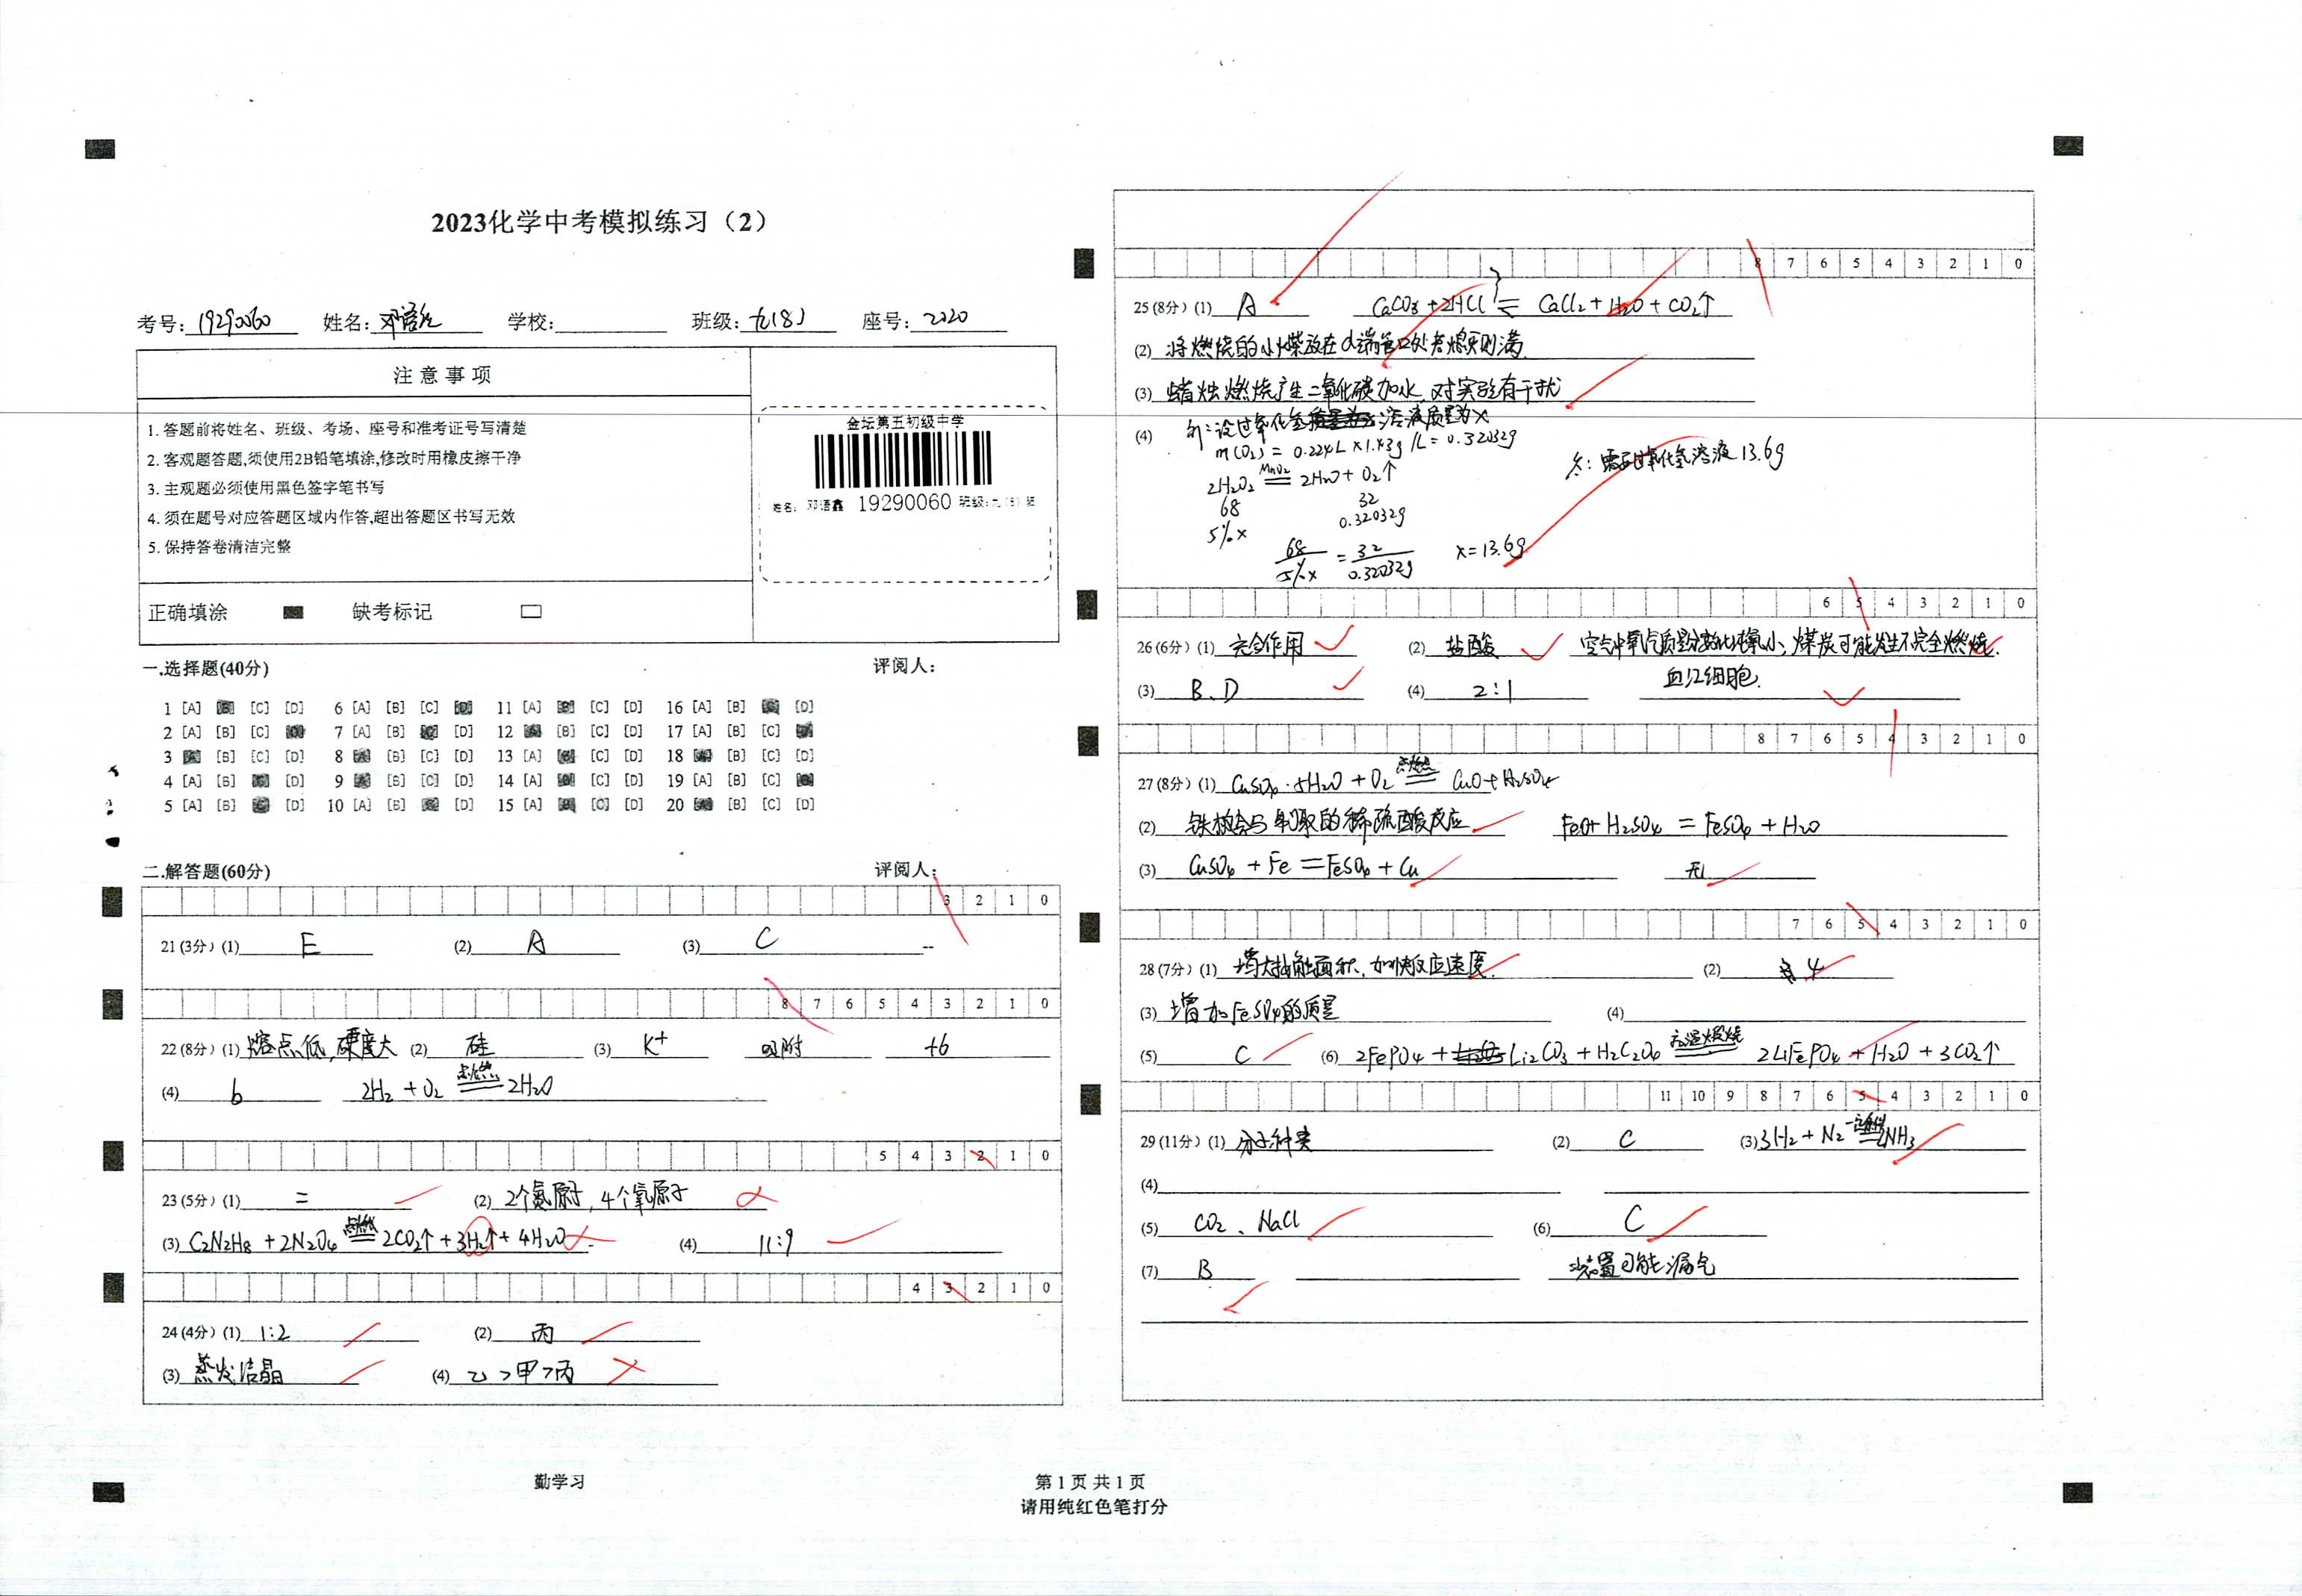 2023化学中考模拟练习（2）
考号: 19290060 姓名: 邓语 学校: 班级: 九(8) 座号: 2020
注意事项
1. 答题前将姓名、班级、考场、座号和准考证号写清楚
2. 客观题答题,须使用2B铅笔填涂,修改时用橡皮擦干净
3. 主观题必须使用黑色签字笔书写
4. 须在题号对应答题区域内作答,超出答题区书写无效
5. 保持答卷清洁完整
金坛第五初级中学
姓名: 邓语鑫 19290060 班级:九（8）班
正确填涂 缺考标记
一.选择题(40分) 评阅人:
1 [A] [C] [D] 6 [A] [B] [C] 11 [A] [C] [D] 16 [A] [B] [D]
2 [A] [B] [C] 7 [A] [B] [D] 12 [B] [C] [D] 17 [A] [B] [C]
3 [B] [C] [D] 8 [B] [C] [D] 13 [A] [C] [D] 18 [B] [C] [D]
4 [A] [B] [D] 9 [B] [C] [D] 14 [A] [C] [D] 19 [A] [B] [C]
5 [A] [B] [D] 10 [A] [B] [D] 15 [A] [C] [D] 20 [B] [C] [D]
二.解答题(60分) 评阅人:
3 2 1 0
21 (3分) (1) E (2) A (3) C --
8 7 6 5 4 3 2 1 0
22 (8分) (1) 熔点低,硬度大 (2) 硅 (3) K⁺ 吸附 +6
(4) b 2H₂ + O₂ 点燃══ 2H₂O
5 4 3 2 1 0
23 (5分) (1) = (2) 2个氮原子,4个氧原子
(3) C₂N₂H₈ + 2N₂O₄ 点燃══ 2CO₂↑ + 3H₂↑ + 4H₂O (4) 11:9
4 3 2 1 0
24 (4分) (1) 1:2 (2) 丙
(3) 蒸发结晶 (4) 乙>甲>丙
8 7 6 5 4 3 2 1 0
25 (8分) (1) A CaCO₃ + 2HCl ══ CaCl₂ + H₂O + CO₂↑
(2) 将燃烧的小木柴放在d端管口处若熄灭则满
(3) 蜡烛燃烧产生二氧化碳加水,对实验有干扰
(4) 解:设过氧化氢溶液质量为x
m(O₂) = 0.224L×1.43g/L = 0.32032g
2H₂O₂ MnO₂══ 2H₂O + O₂↑
68 32
5%x 0.32032g
68/5%x = 32/0.32032g x=13.6g
答:需要过氧化氢溶液13.6g
6 5 4 3 2 1 0
26 (6分) (1) 光合作用 (2) 盐酸 空气中氧气质量分数比纯氧小,煤炭可能发生不完全燃烧.
(3) B、D (4) 2:1 血红细胞.
8 7 6 5 4 3 2 1 0
27 (8分) (1) CuSO₄·5H₂O + O₂ 点燃══ CuO + H₂SO₄
(2) 铁粉会与制取的稀硫酸反应 FeO + H₂SO₄ = FeSO₄ + H₂O
(3) CuSO₄ + Fe ══ FeSO₄ + Cu 无
7 6 5 4 3 2 1 0
28 (7分) (1) 增大接触面积,加快反应速度. (2) 4
(3) 增加FeSO₄的质量 (4)
(5) C (6) 2FePO₄ + Li₂CO₃ + H₂C₂O₄ 高温燃烧══ 2LiFePO₄ + H₂O + 3CO₂↑
11 10 9 8 7 6 5 4 3 2 1 0
29 (11分) (1) 分子种类 (2) C (3) 3H₂ + N₂ 一定条件══ 2NH₃
(4)
(5) CO₂、NaCl (6) C
(7) B 装置可能漏气
勤学习
第 1 页 共 1 页
请用纯红色笔打分